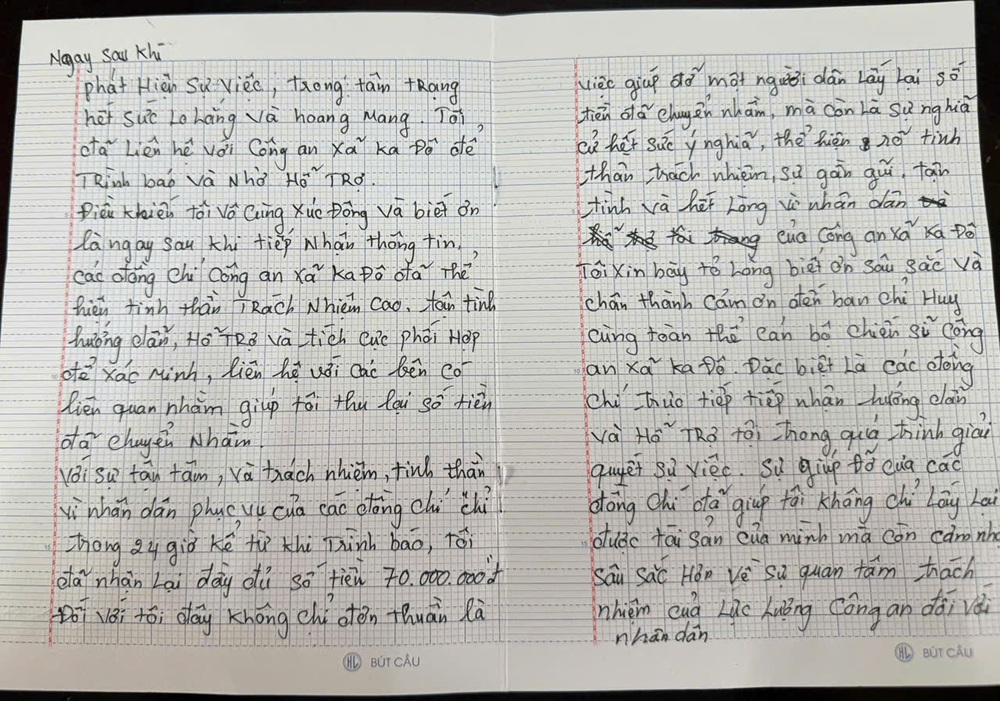 Ngay sau khi
phát Hiện Sự Việc, Trong tâm trạng
hết Sức Lo Lắng Và hoang Mang. Tôi
đã Liên hệ Với Công an Xã Ka Đô để
Trình báo Và Nhờ Hỗ Trợ.
Điều khiến tôi Vô Cùng Xúc Động Và biết ơn
là ngay sau khi tiếp Nhận thông tin,
các đồng Chí Công an Xã Ka Đô đã Thể
hiện tinh thần Trách Nhiệm Cao, tận tình
hướng dẫn, Hỗ Trợ Và tích Cực phối Hợp
để Xác Minh, liên hệ với các bên có
liên quan nhằm giúp tôi thu lại số tiền
đã Chuyển Nhầm.
Với Sự tận tâm, Và trách nhiệm, tinh thần
vì nhân dân phục vụ của các đồng chí chỉ
Trong 24 giờ Kể từ khi Trình báo, Tôi
đã nhận Lại đầy đủ số tiền 70.000.000đ
Đối Với tôi đây Không Chỉ đơn thuần là
việc giúp đỡ một người dân Lấy Lại số
tiền đã chuyển nhầm, mà Còn Là Sự nghĩa
cử hết sức ý nghĩa, thể hiện rõ tinh
thần trách nhiệm, sự gần gũi, tận
tình và hết Lòng vì nhân dân
của Công an Xã Ka Đô
Tôi Xin bày tỏ Lòng biết ơn Sâu Sắc Và
chân thành Cảm ơn đến ban Chỉ Huy
Cùng toàn thể Cán bộ Chiến Sĩ Công
an Xã Ka Đô. Đặc biệt Là Các đồng
chí Trực tiếp tiếp nhận hướng dẫn
Và Hỗ Trợ tôi Trong quá Trình giải
quyết Sự Việc. Sự giúp Đỡ của các
đồng Chí đã giúp tôi không chỉ Lấy Lại
được tài Sản Của mình mà còn cảm nh
Sâu Sắc Hơn Về Sự quan tâm trách
nhiệm của Lực Lượng Công an đối Với
nhân dân
HL BÚT CÂU
HL BÚT CÂU